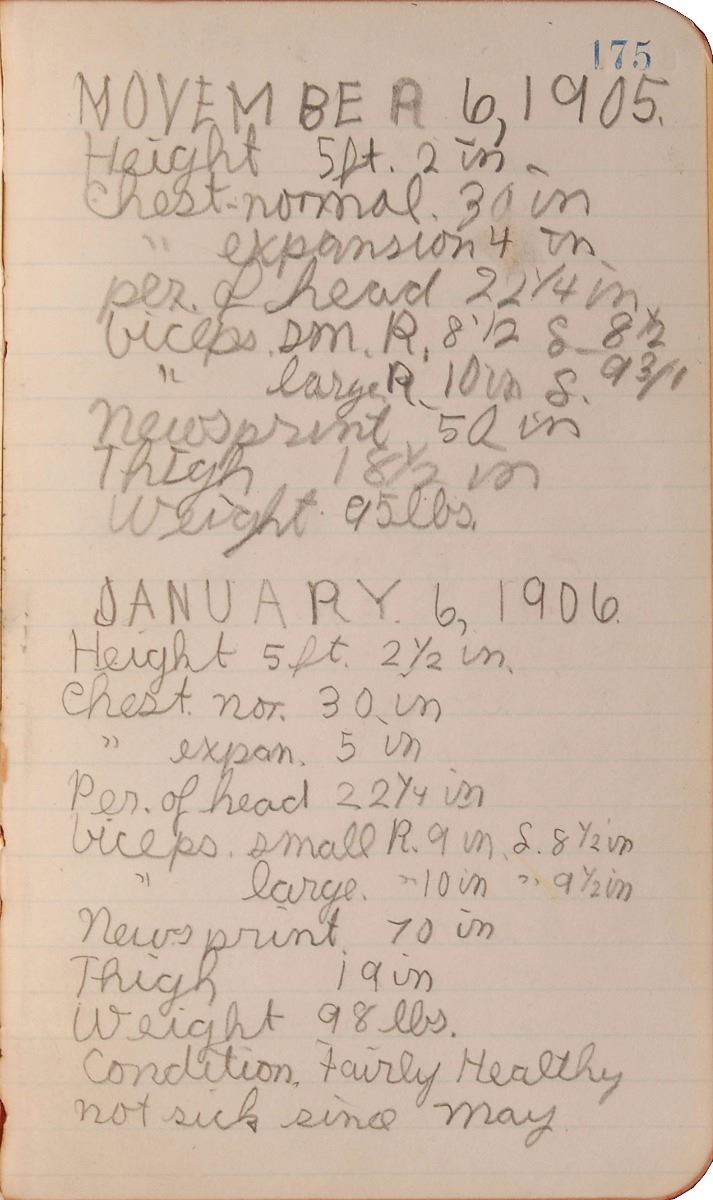 175
NOVEMBER 6, 1905.
Height 5ft. 2 in.
Chest-normal. 30 in
" expansion 4 in
per. of head 22 1/4 in.
biceps. sm. R. 8 1/2 L 8 1/2
" large R. 10 in L. 9 3/4
Newsprint 50 in
Thigh 18 1/2 in
Weight 95 lbs.
JANUARY 6, 1906.
Height 5 ft. 2 1/2 in.
Chest. nor. 30 in
" expan. 5 in
Per. of head 22 1/4 in
biceps. small R. 9 in. L. 8 1/2 in
" large. " 10 in " 9 1/2 in
Newsprint. 70 in
Thigh 19 in
Weight 98 lbs.
Condition. Fairly Healthy
not sick since May